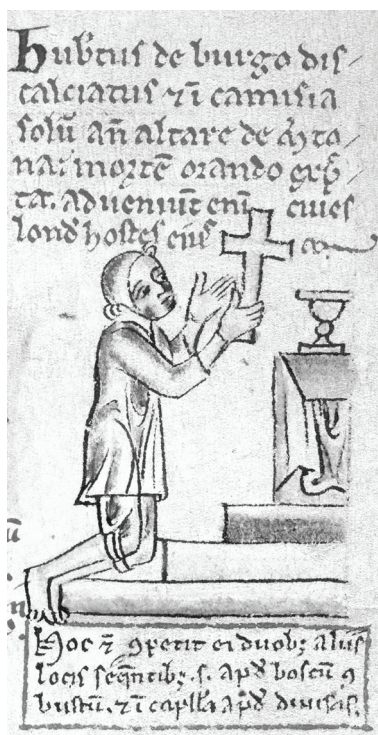 Hub̄tus de burgo dis⸝
calciatus ⁊ ī camisia
solū an̄ altare de M̄to⸝
na: mortē orando exp̄⸝
tā. advenīut enī cives
lond̄ hostes eius
Hoc ⁊ ꝯpetit ei duob; aliis
locis seq̄ntib; .s. apd̄ boscū ꝯ
bustū. ⁊ ī capll̄a apd̄ divisas.